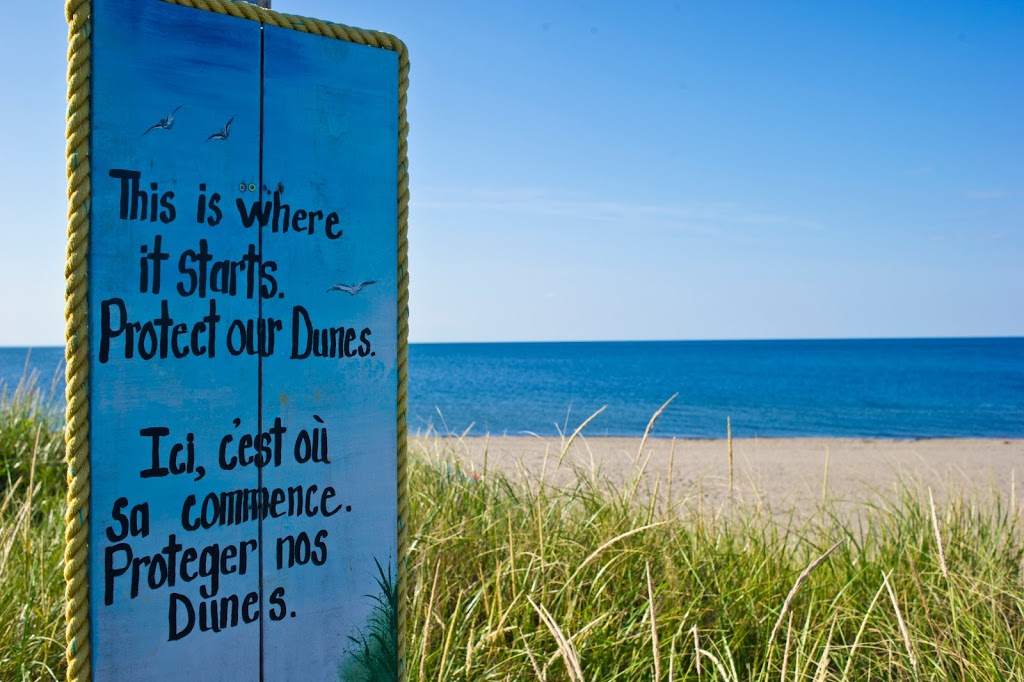 This is where
it starts.
Protect our Dunes.
Ici, c'est où
sa commence.
Proteger nos
Dunes.